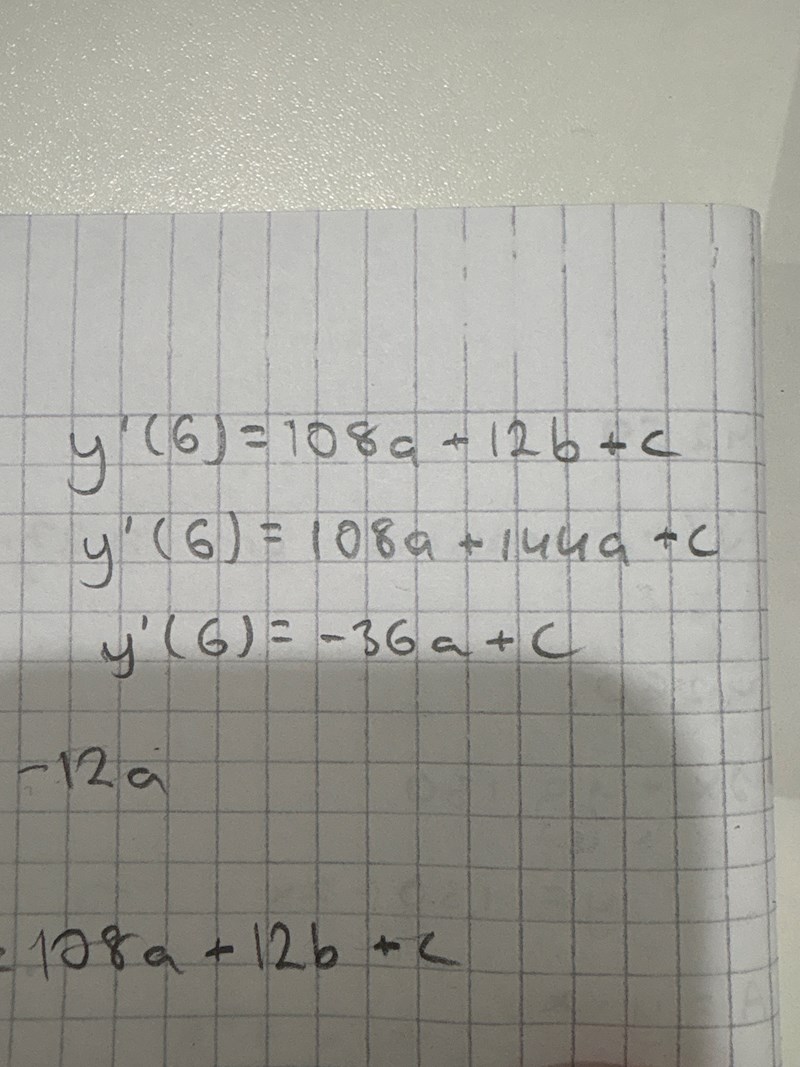 y'(6) = 108a + 12b + c
y'(6) = 108a + 144a + c
y'(6) = -36a + c
-12a
= 108a + 12b + c